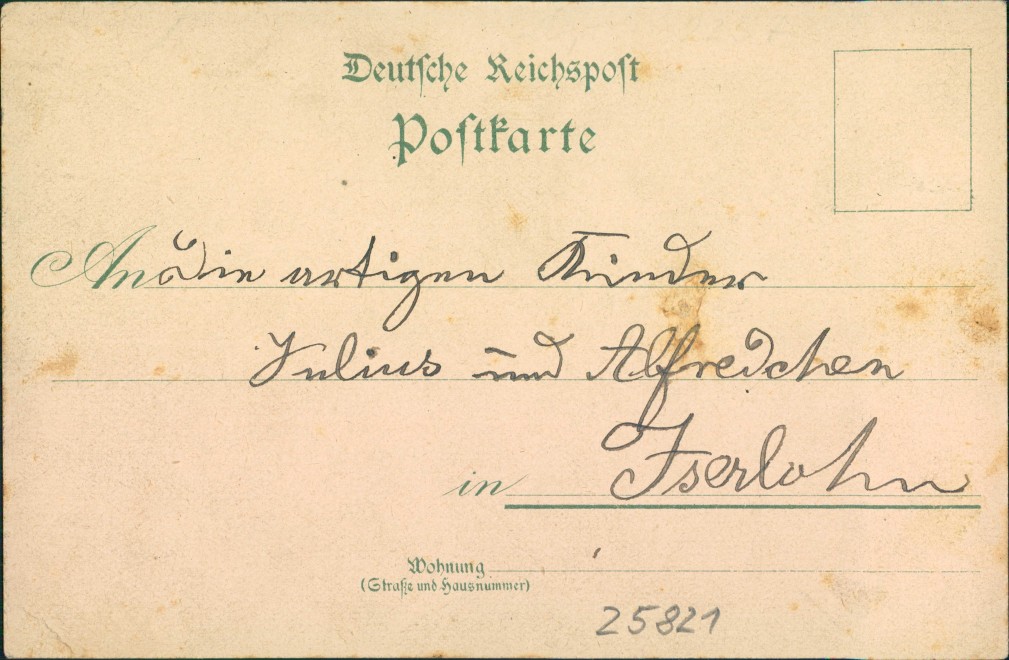 Deutsche Reichspost
Postkarte
An die artigen Kinder
Julius und Alfredchen
in Iserlohn
Wohnung
(Straße und Hausnummer)
25821